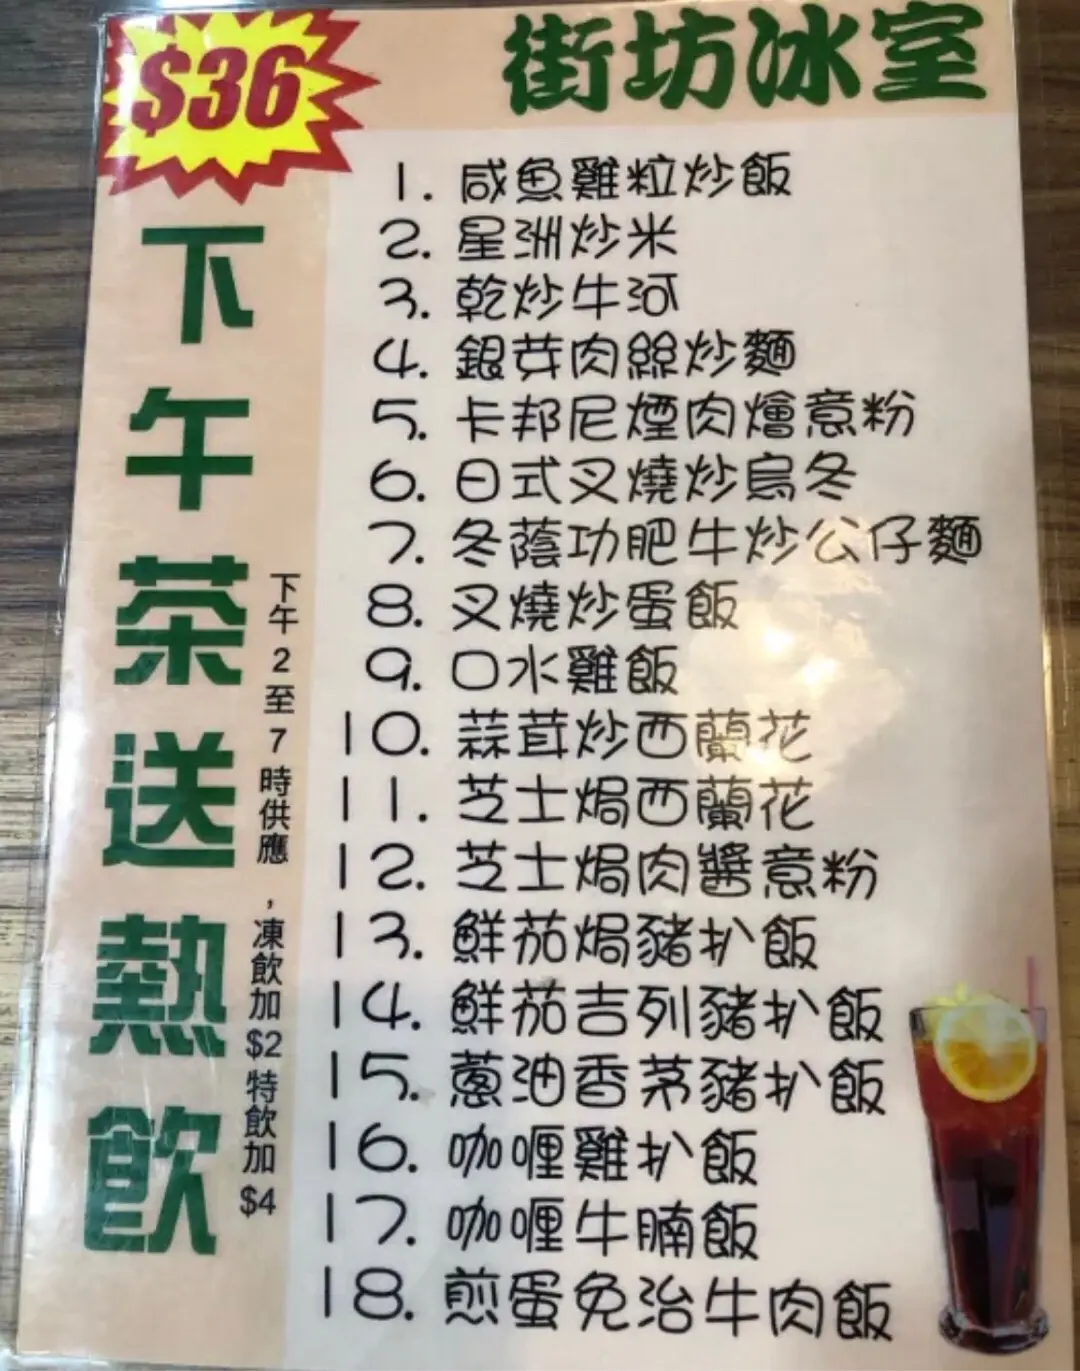 $36
街坊冰室
下午茶送熱飲
下午2至7時供應，凍飲加$2特飲加$4
1. 咸魚雞粒炒飯
2. 星洲炒米
3. 乾炒牛河
4. 銀芽肉絲炒麵
5. 卡邦尼煙肉燴意粉
6. 日式叉燒炒烏冬
7. 冬蔭功肥牛炒公仔麵
8. 叉燒炒蛋飯
9. 口水雞飯
10. 蒜茸炒西蘭花
11. 芝士焗西蘭花
12. 芝士焗肉醬意粉
13. 鮮茄焗豬扒飯
14. 鮮茄吉列豬扒飯
15. 蔥油香茅豬扒飯
16. 咖喱雞扒飯
17. 咖喱牛腩飯
18. 煎蛋免治牛肉飯